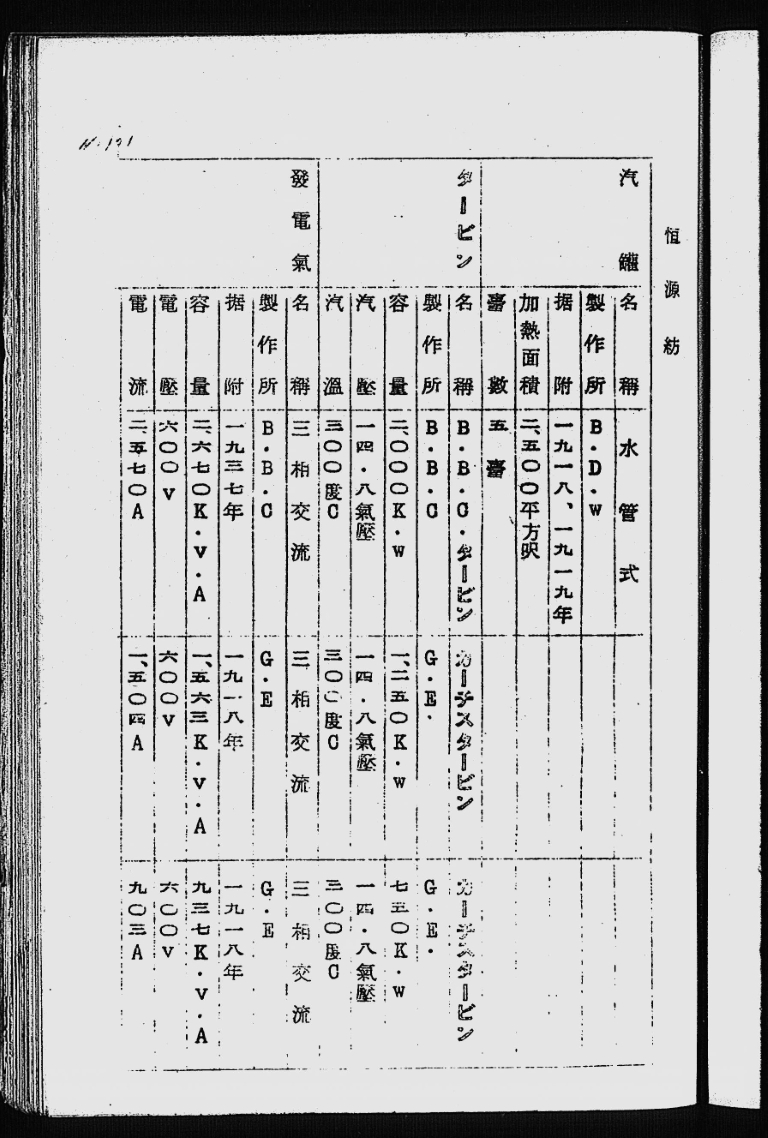 恒源紡
汽罐
名稱 水管式
製作所 B.D.W
据附 一九一八、一九一九年
加熱面積 二、五〇〇平方呎
臺數 五臺
タービン
名稱 B.B.C.タービン カーチスタービン カーチスタービン
製作所 B.B.C G.E. G.E.
容量 二、〇〇〇K.W 一、二五〇K.W 七五〇K.W
汽壓 一四.八氣壓 一四.八氣壓 一四.八氣壓
汽溫 三〇〇度C 三〇〇度C 三〇〇度C
發電氣
名稱 三相交流 三相交流 三相交流
製作所 B.B.C G.E G.E
据附 一九三七年 一九一八年 一九一八年
容量 二、六七〇K.V.A 一、五六三K.V.A 九三七K.V.A
電壓 六〇〇V 六〇〇V 六〇〇V
電流 二、五七〇A 一、五〇四A 九〇三A